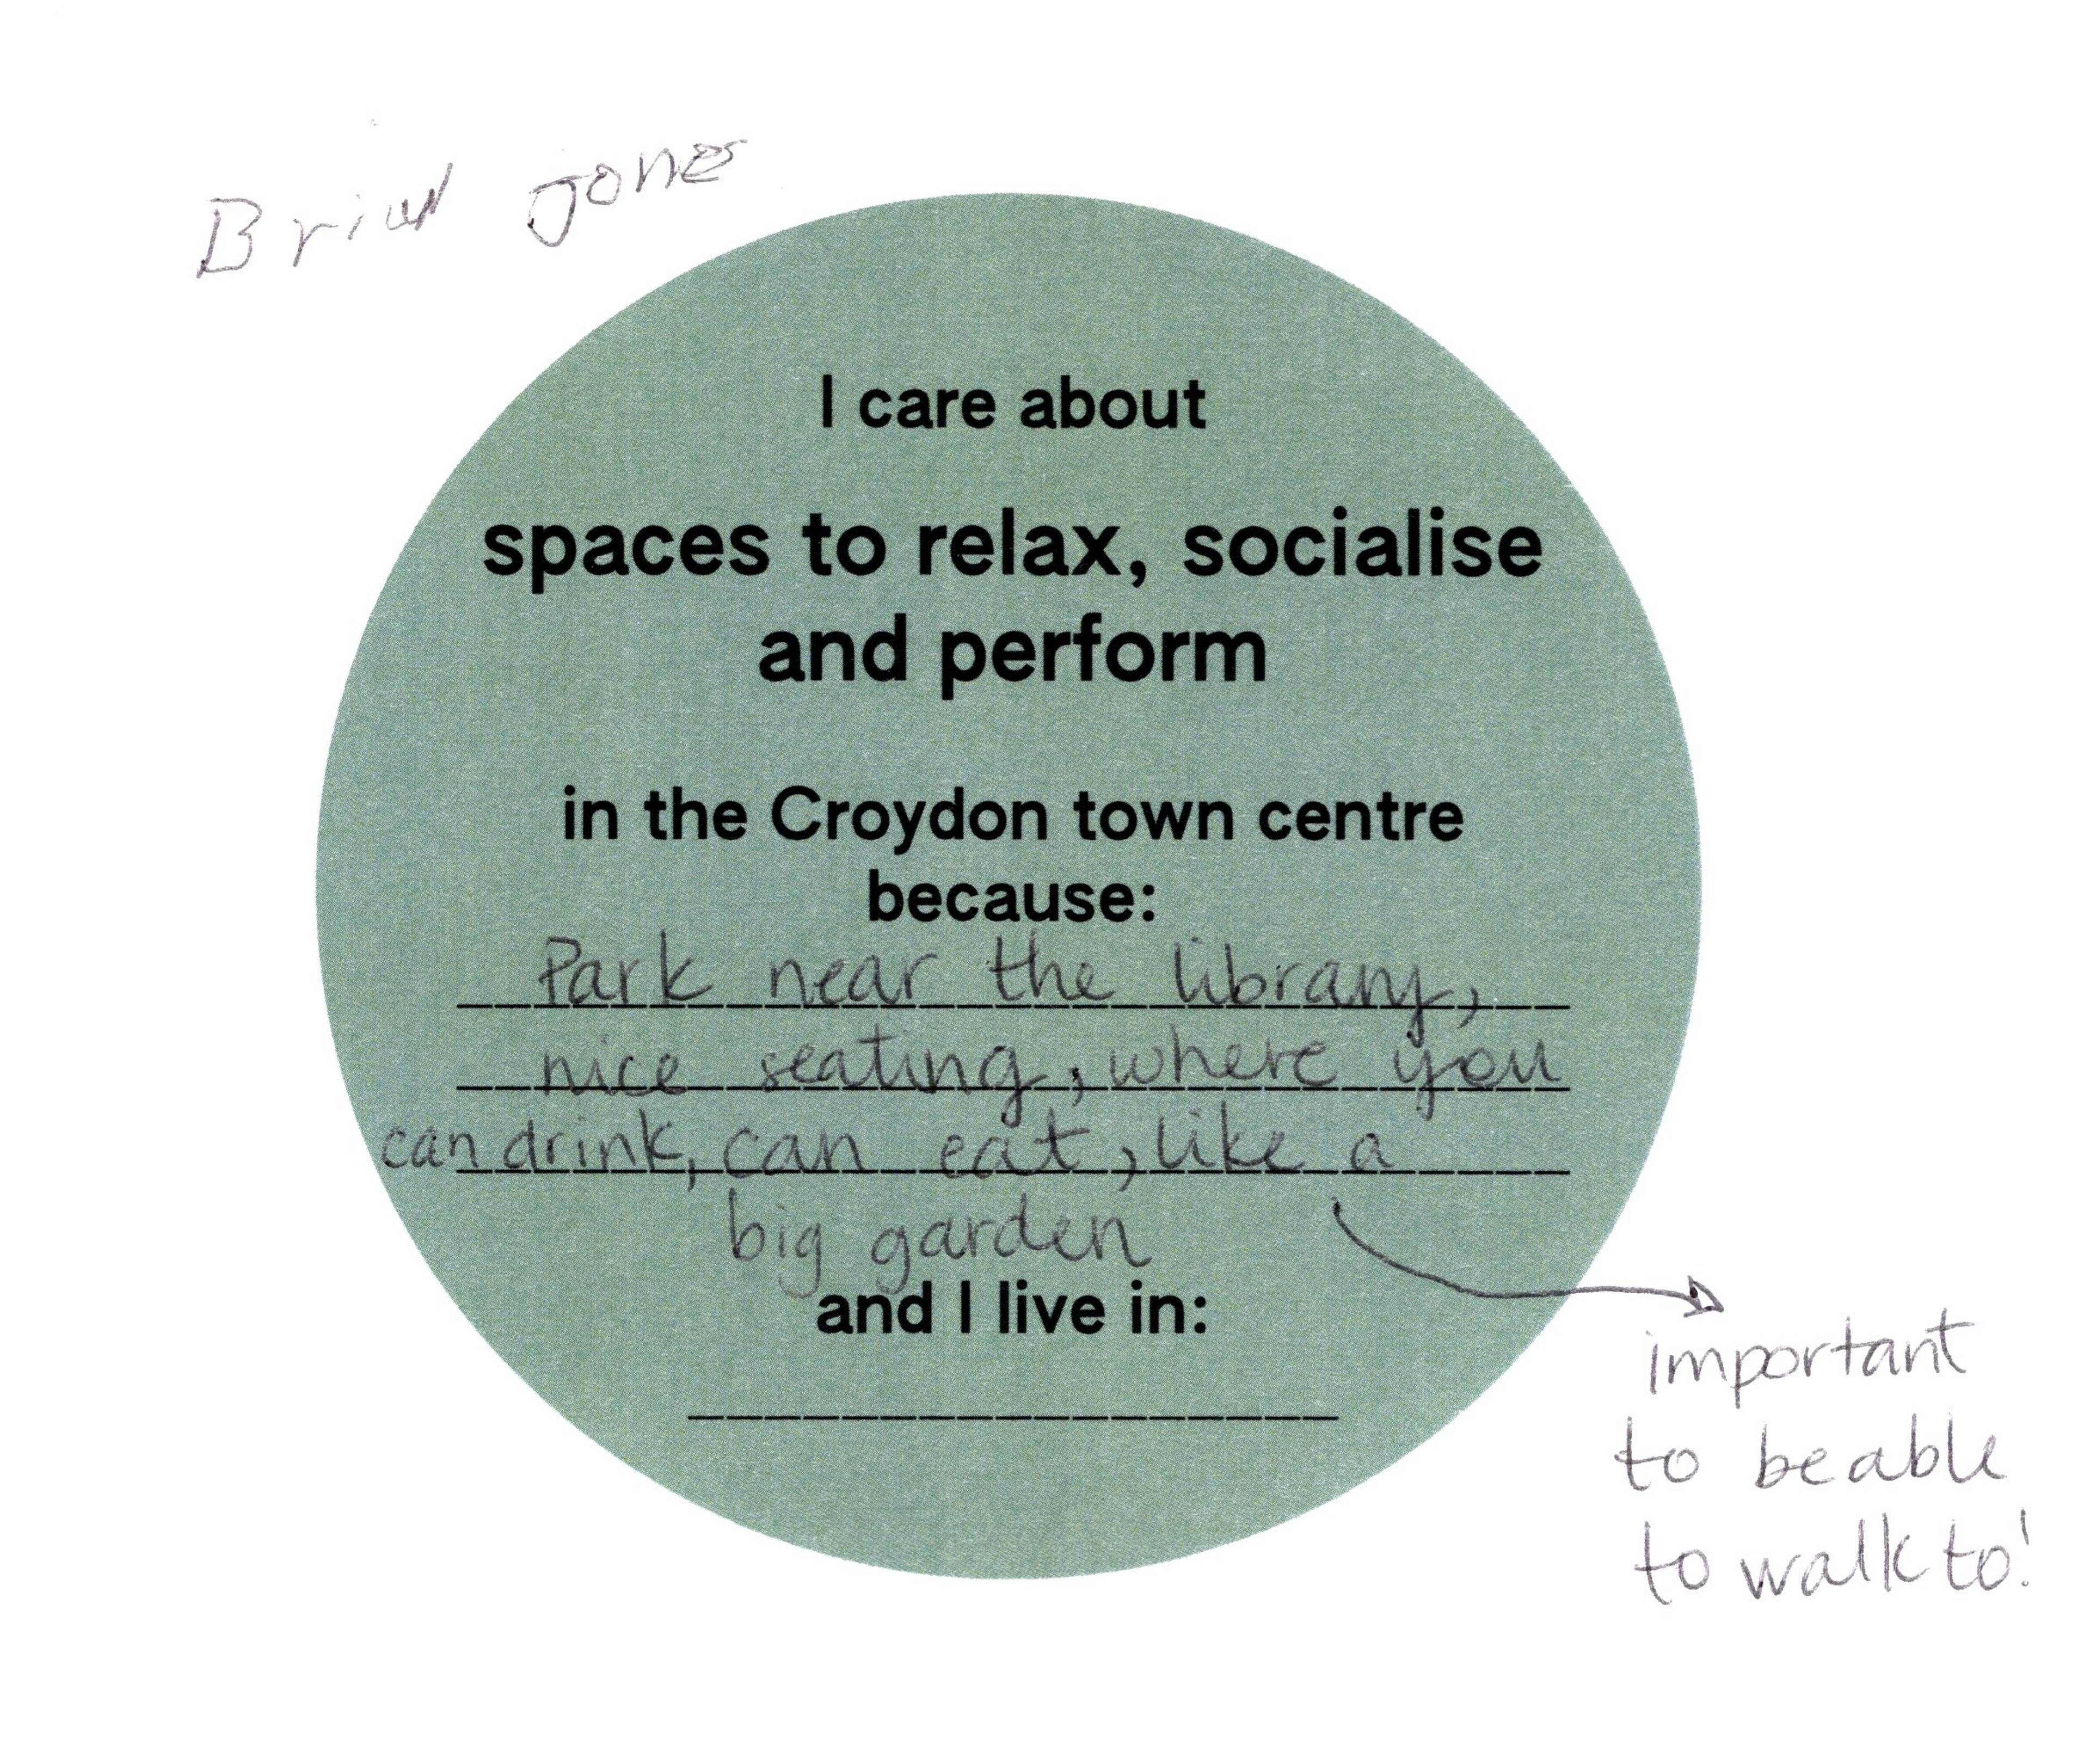 Brian Jones
I care about
spaces to relax, socialise
and perform
in the Croydon town centre
because:
Park near the library,
nice seating, where you
can drink, can eat, like a
big garden
and I live in:
important
to be able
to walk to!